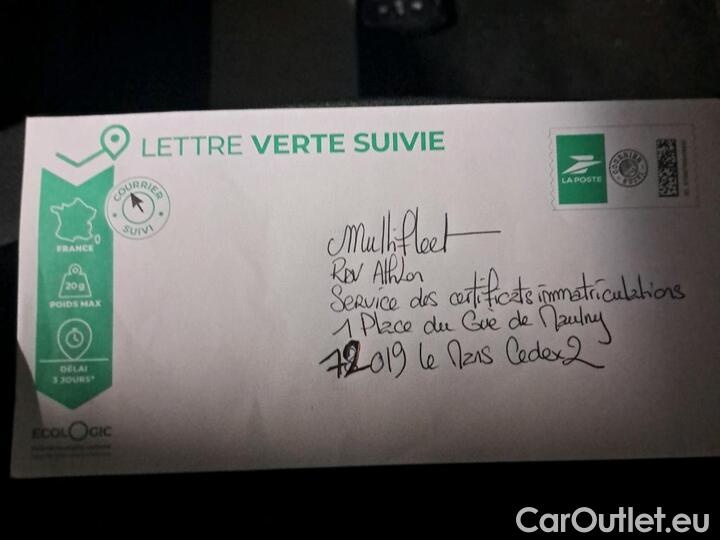 LETTRE VERTE SUIVIE
LA POSTE
COURRIER
SUIVI
FRANCE
20g
POIDS MAX
DÉLAI
3 JOURS*
ECOLOGIC
Multifleet
Rdv Athlon
Service des certificats immatriculations
1 Place du Gué de Maulny
72019 le Mans Cedex 2
CarOutlet.eu